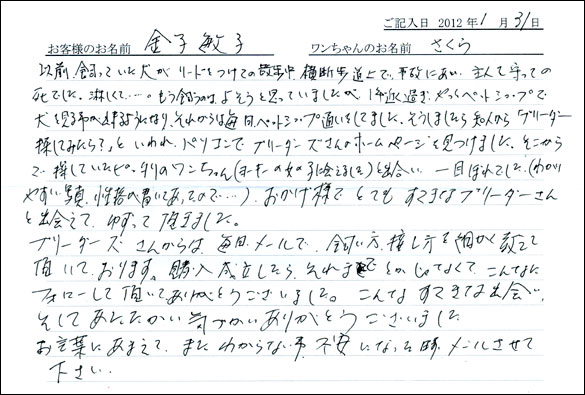 ご記入日 2012年 1月 31日
お客様のお名前 金子 敏子 ワンちゃんのお名前 さくら
以前、飼っていた犬がリードをつけての散歩中、横断歩道上で、事故にあい、主人を守っての
死でした。淋しくて…。もう飼うのはよそうと思っていましたが、1年近く過ぎ、やっとペットショップで
犬を見る事が出来るようになり、それからは毎日、ペットショップ通いをしてました。そうしましたら知人から「ブリーダー
探してみたら?」といわれ、パソコンでブリーダーズさんのホームページを見つけました。そこから
で探していたピッタリのワンちゃん(ヨーキーの女の子に会えました)と出会い、一目ぼれでした(わかり
やすい写真、性格の書いてあったので…)。おかげ様でとてもすてきなブリーダーさん
と出会えて、ゆずって頂きました。
ブリーダーズさんからは、毎日メールで、飼い方、接し方を細かく教えて
頂いております。購入成立したら、それまでとかじゃなくて、こんなに
フォローして頂いてありがとうございました。こんなすてきな出会い、
そしてあたたかい気づかいありがとうございました
お言葉にあまえて、またわからない事、不安になった時、メールさせて
下さい。